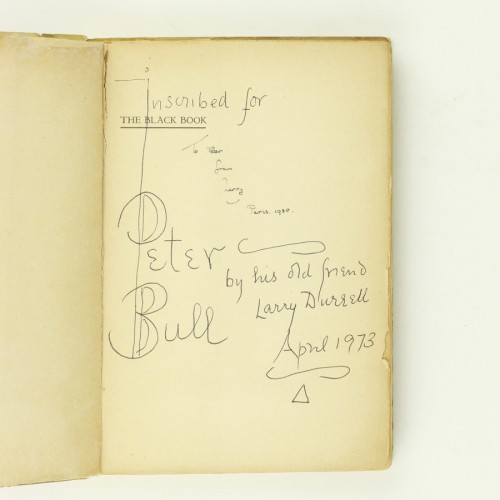 Inscribed for
THE BLACK BOOK
To Peter
from
Larry
Paris. 1938.
Peter
Bull
by his old friend
Larry Durrell
April 1973